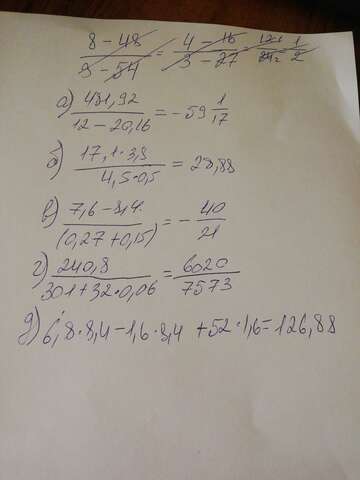 8 - 48 / 9 - 54 = 4 - 16 / 3 - 27 = 12 / 24 = 1 / 2
а) 481,92 / 12 - 20,16 = - 59 1/17
б) 17,1·3,8 / 4,5·0,5 = 28,88
в) 7,6 - 8,4 / (0,27 + 0,15) = - 40/21
г) 240,8 / 301 + 32·0,06 = 6020/7573
д) 6,8·8,4 - 1,6·8,4 + 52·1,6 = 126,88